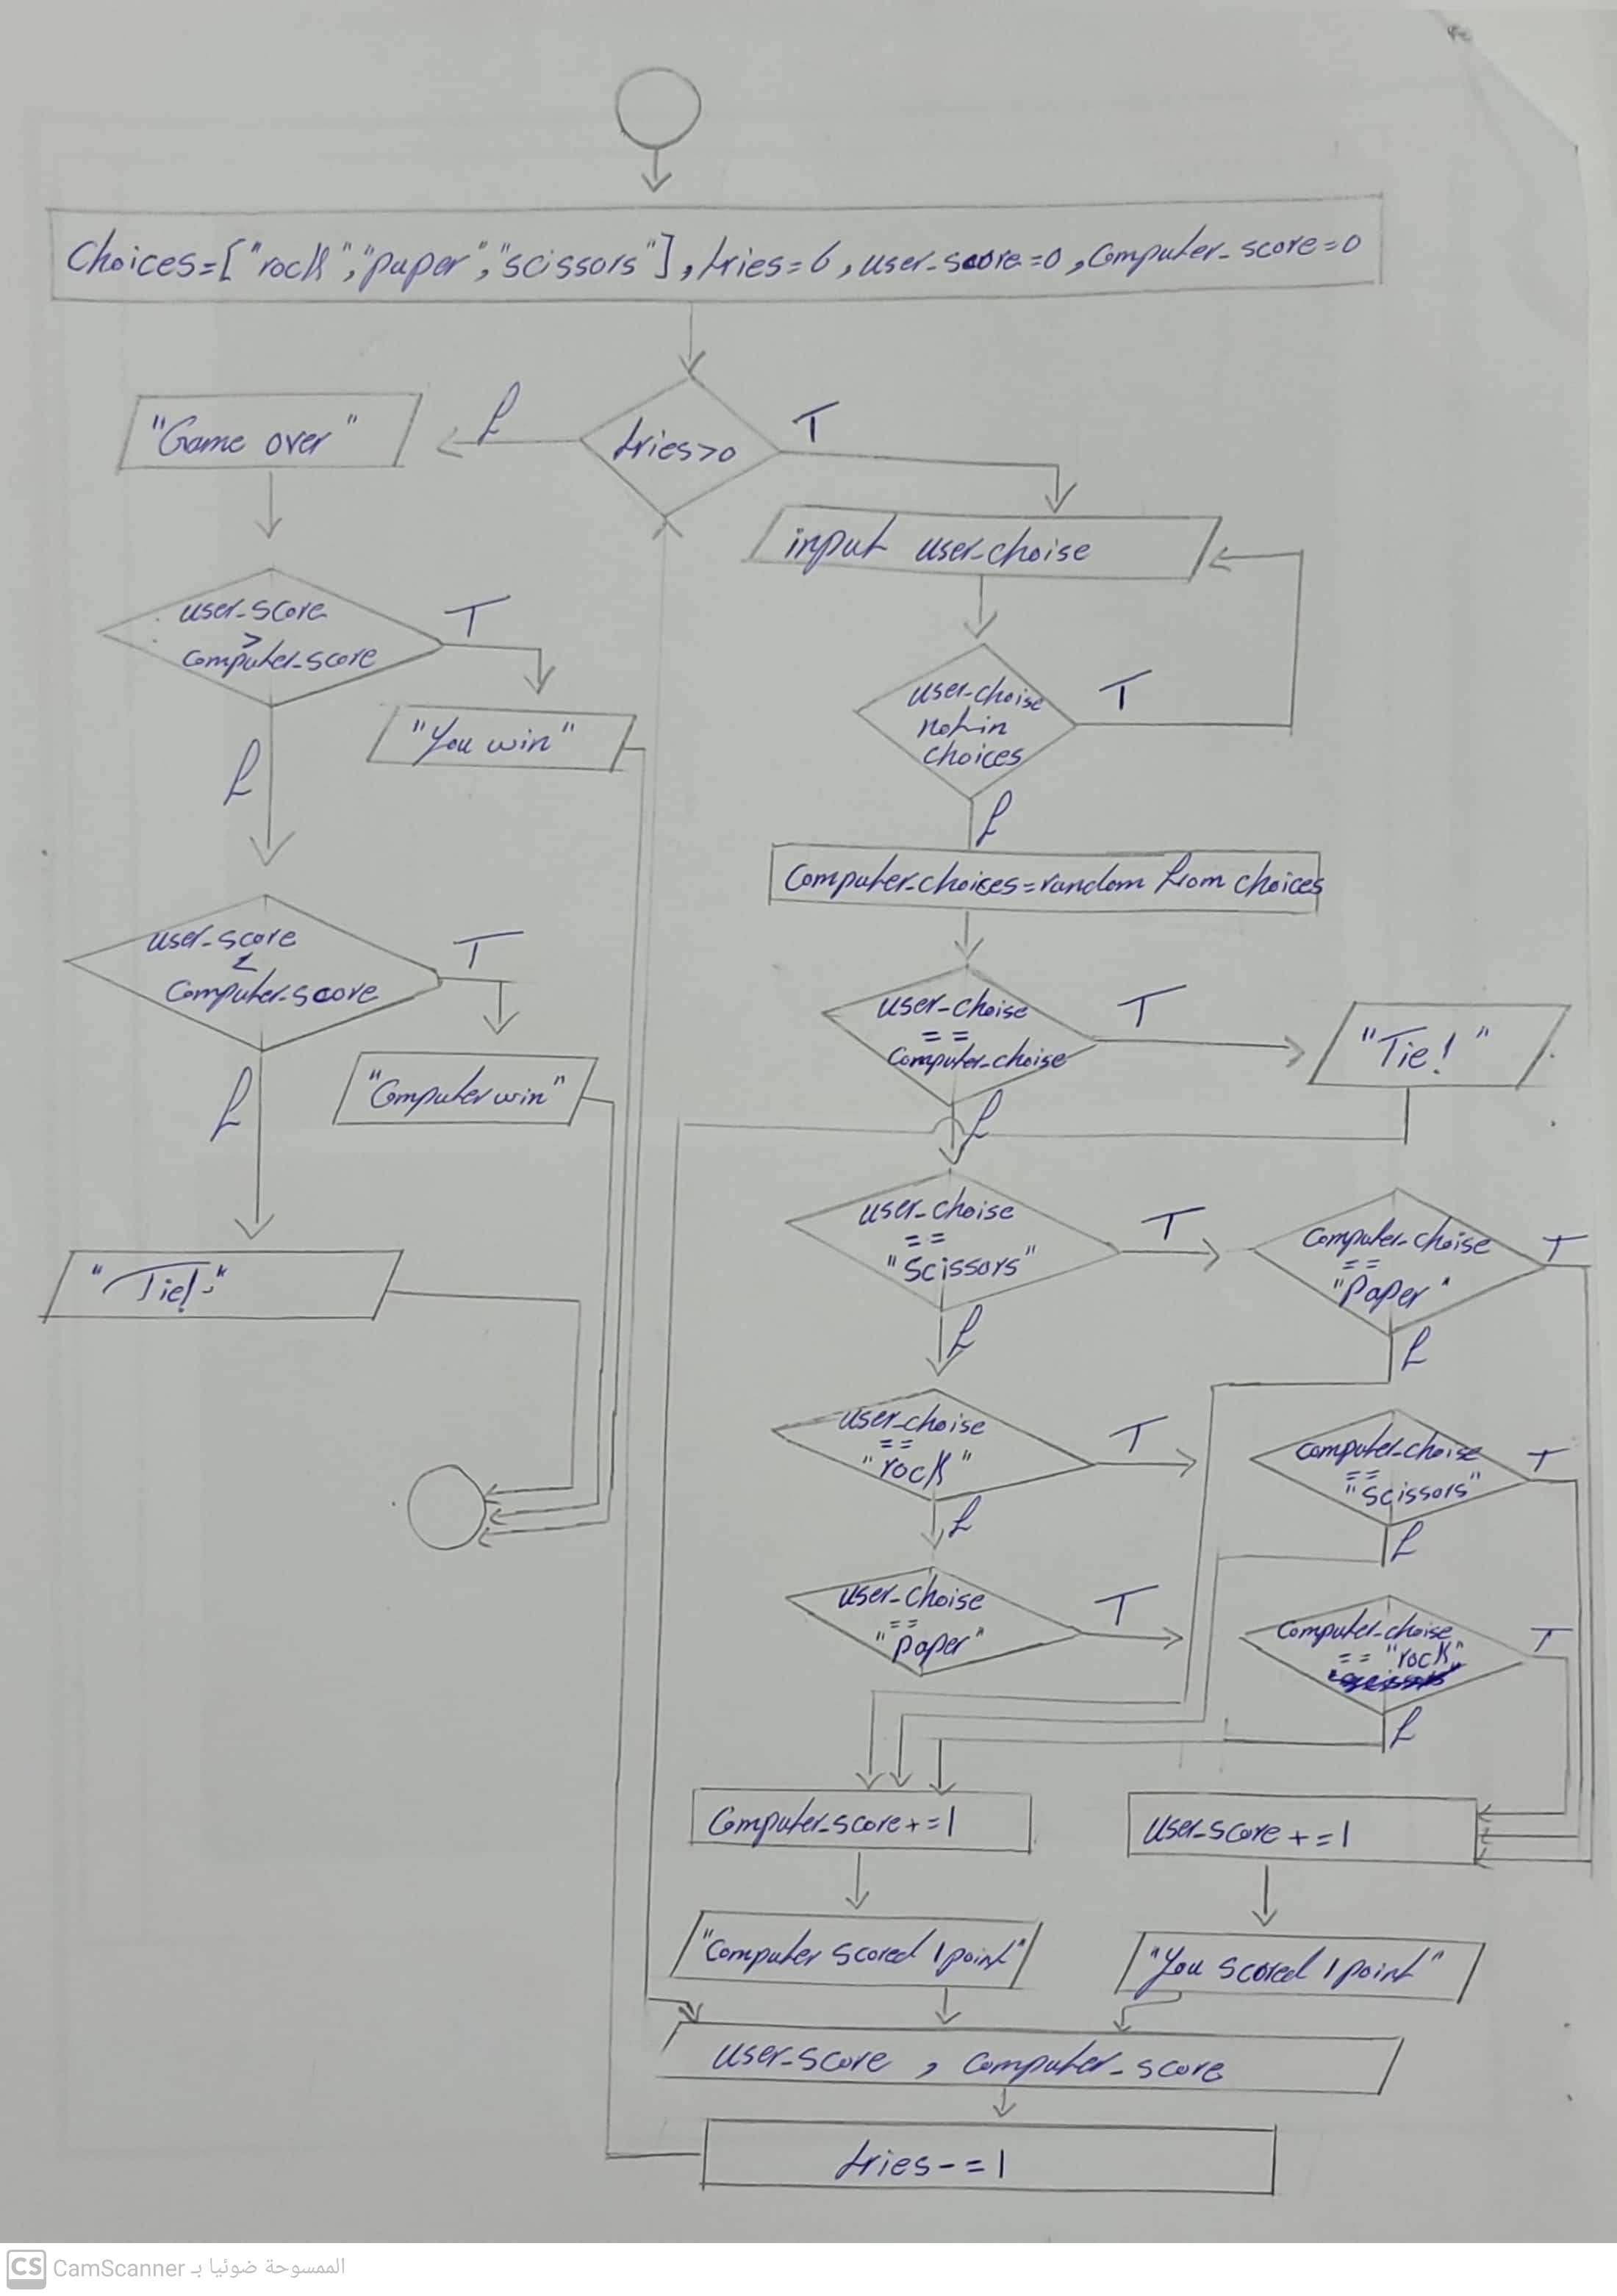 Choices=["rock","paper","scissors"], tries=6, user_score=0, Computer_score=0
tries>0
f
T
"Game over"
input user_choise
user_score
>
computer_score
T
"You win"
f
user_choise
not in
choices
T
f
Computer_choices=random from choices
user_score
<
Computer_score
T
"Computer win"
f
user_choise
==
Computer_choise
T
"Tie!"
f
"Tie!"
user_choise
==
"Scissors"
T
Computer_choise
==
"Paper"
T
f
f
user_choise
==
"rock"
T
computer_choise
==
"Scissors"
T
f
f
user_choise
==
"paper"
T
Computer_choise
== "rock"
T
f
Computer_score+=1
User_score+=1
"Computer scored 1 point"
"You scored 1 point"
user_score , computer_score
tries-=1
CS CamScanner الممسوحة ضوئيا بـ